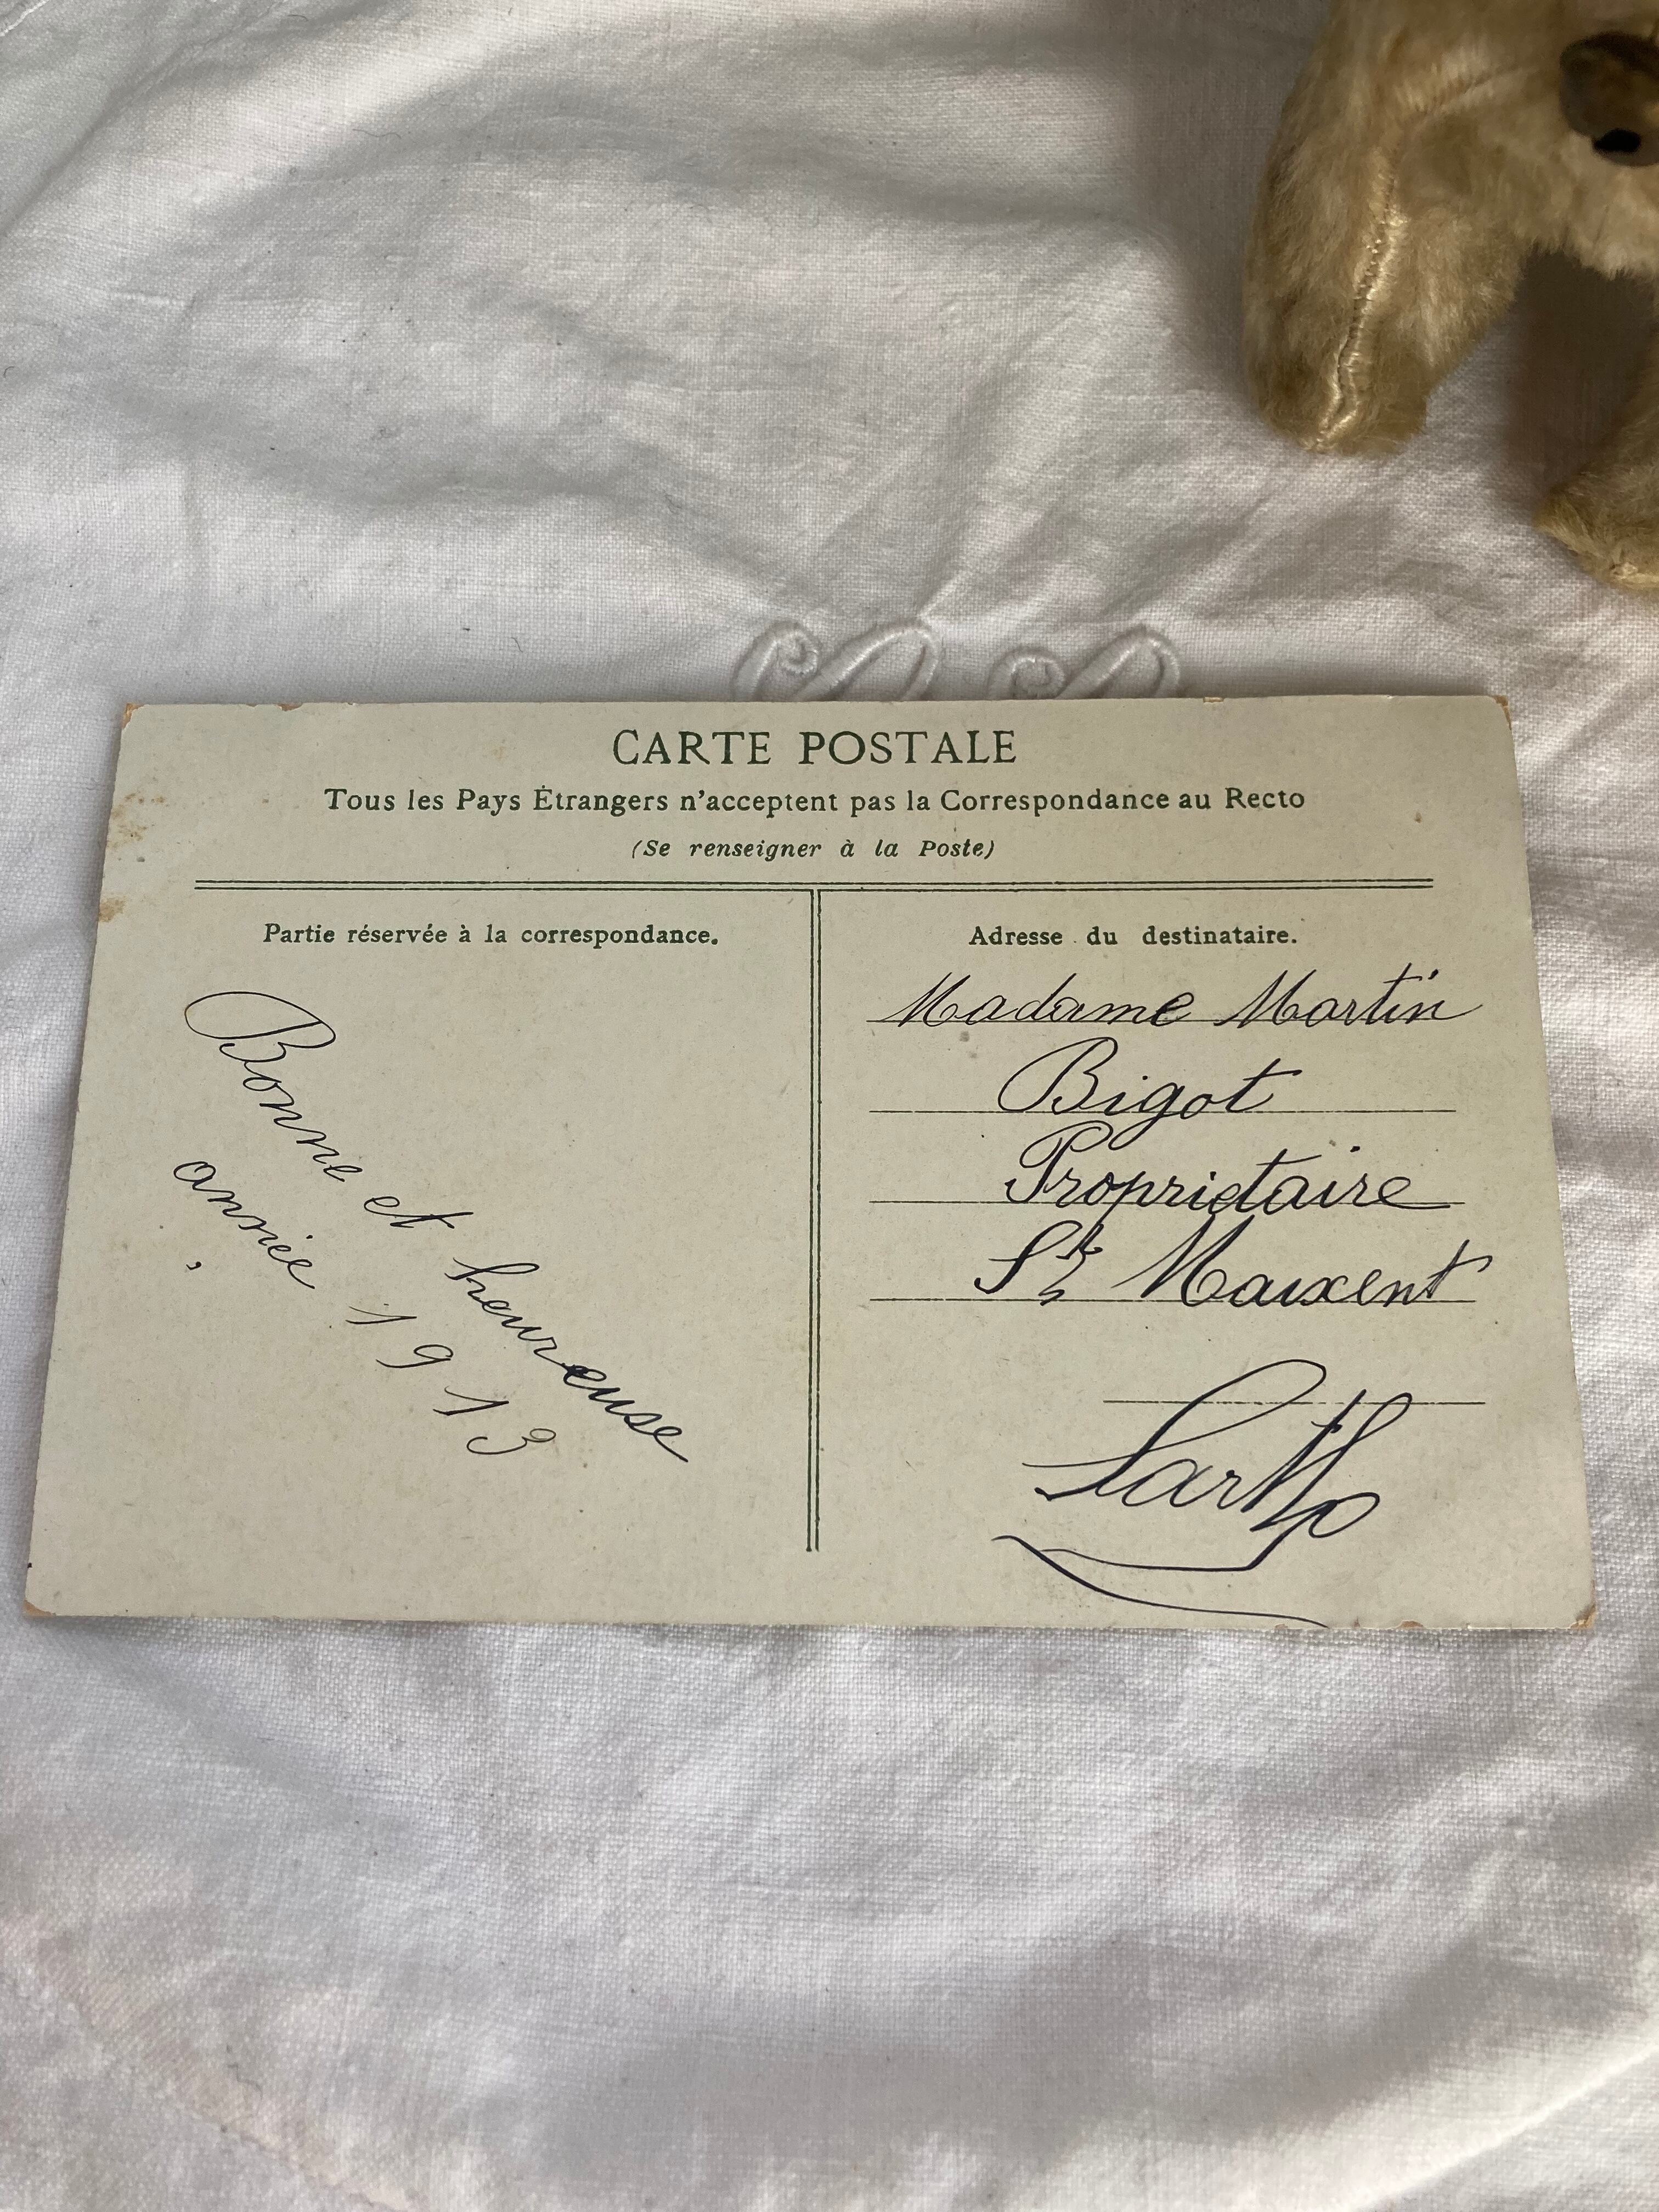 CARTE POSTALE
Tous les Pays Étrangers n'acceptent pas la Correspondance au Recto
(Se renseigner à la Poste)
Partie réservée à la correspondance.
Bonne et heureuse
année 1913
Adresse du destinataire.
Madame Martin
Bigot
Propriétaire
St Maixent
Sarthe